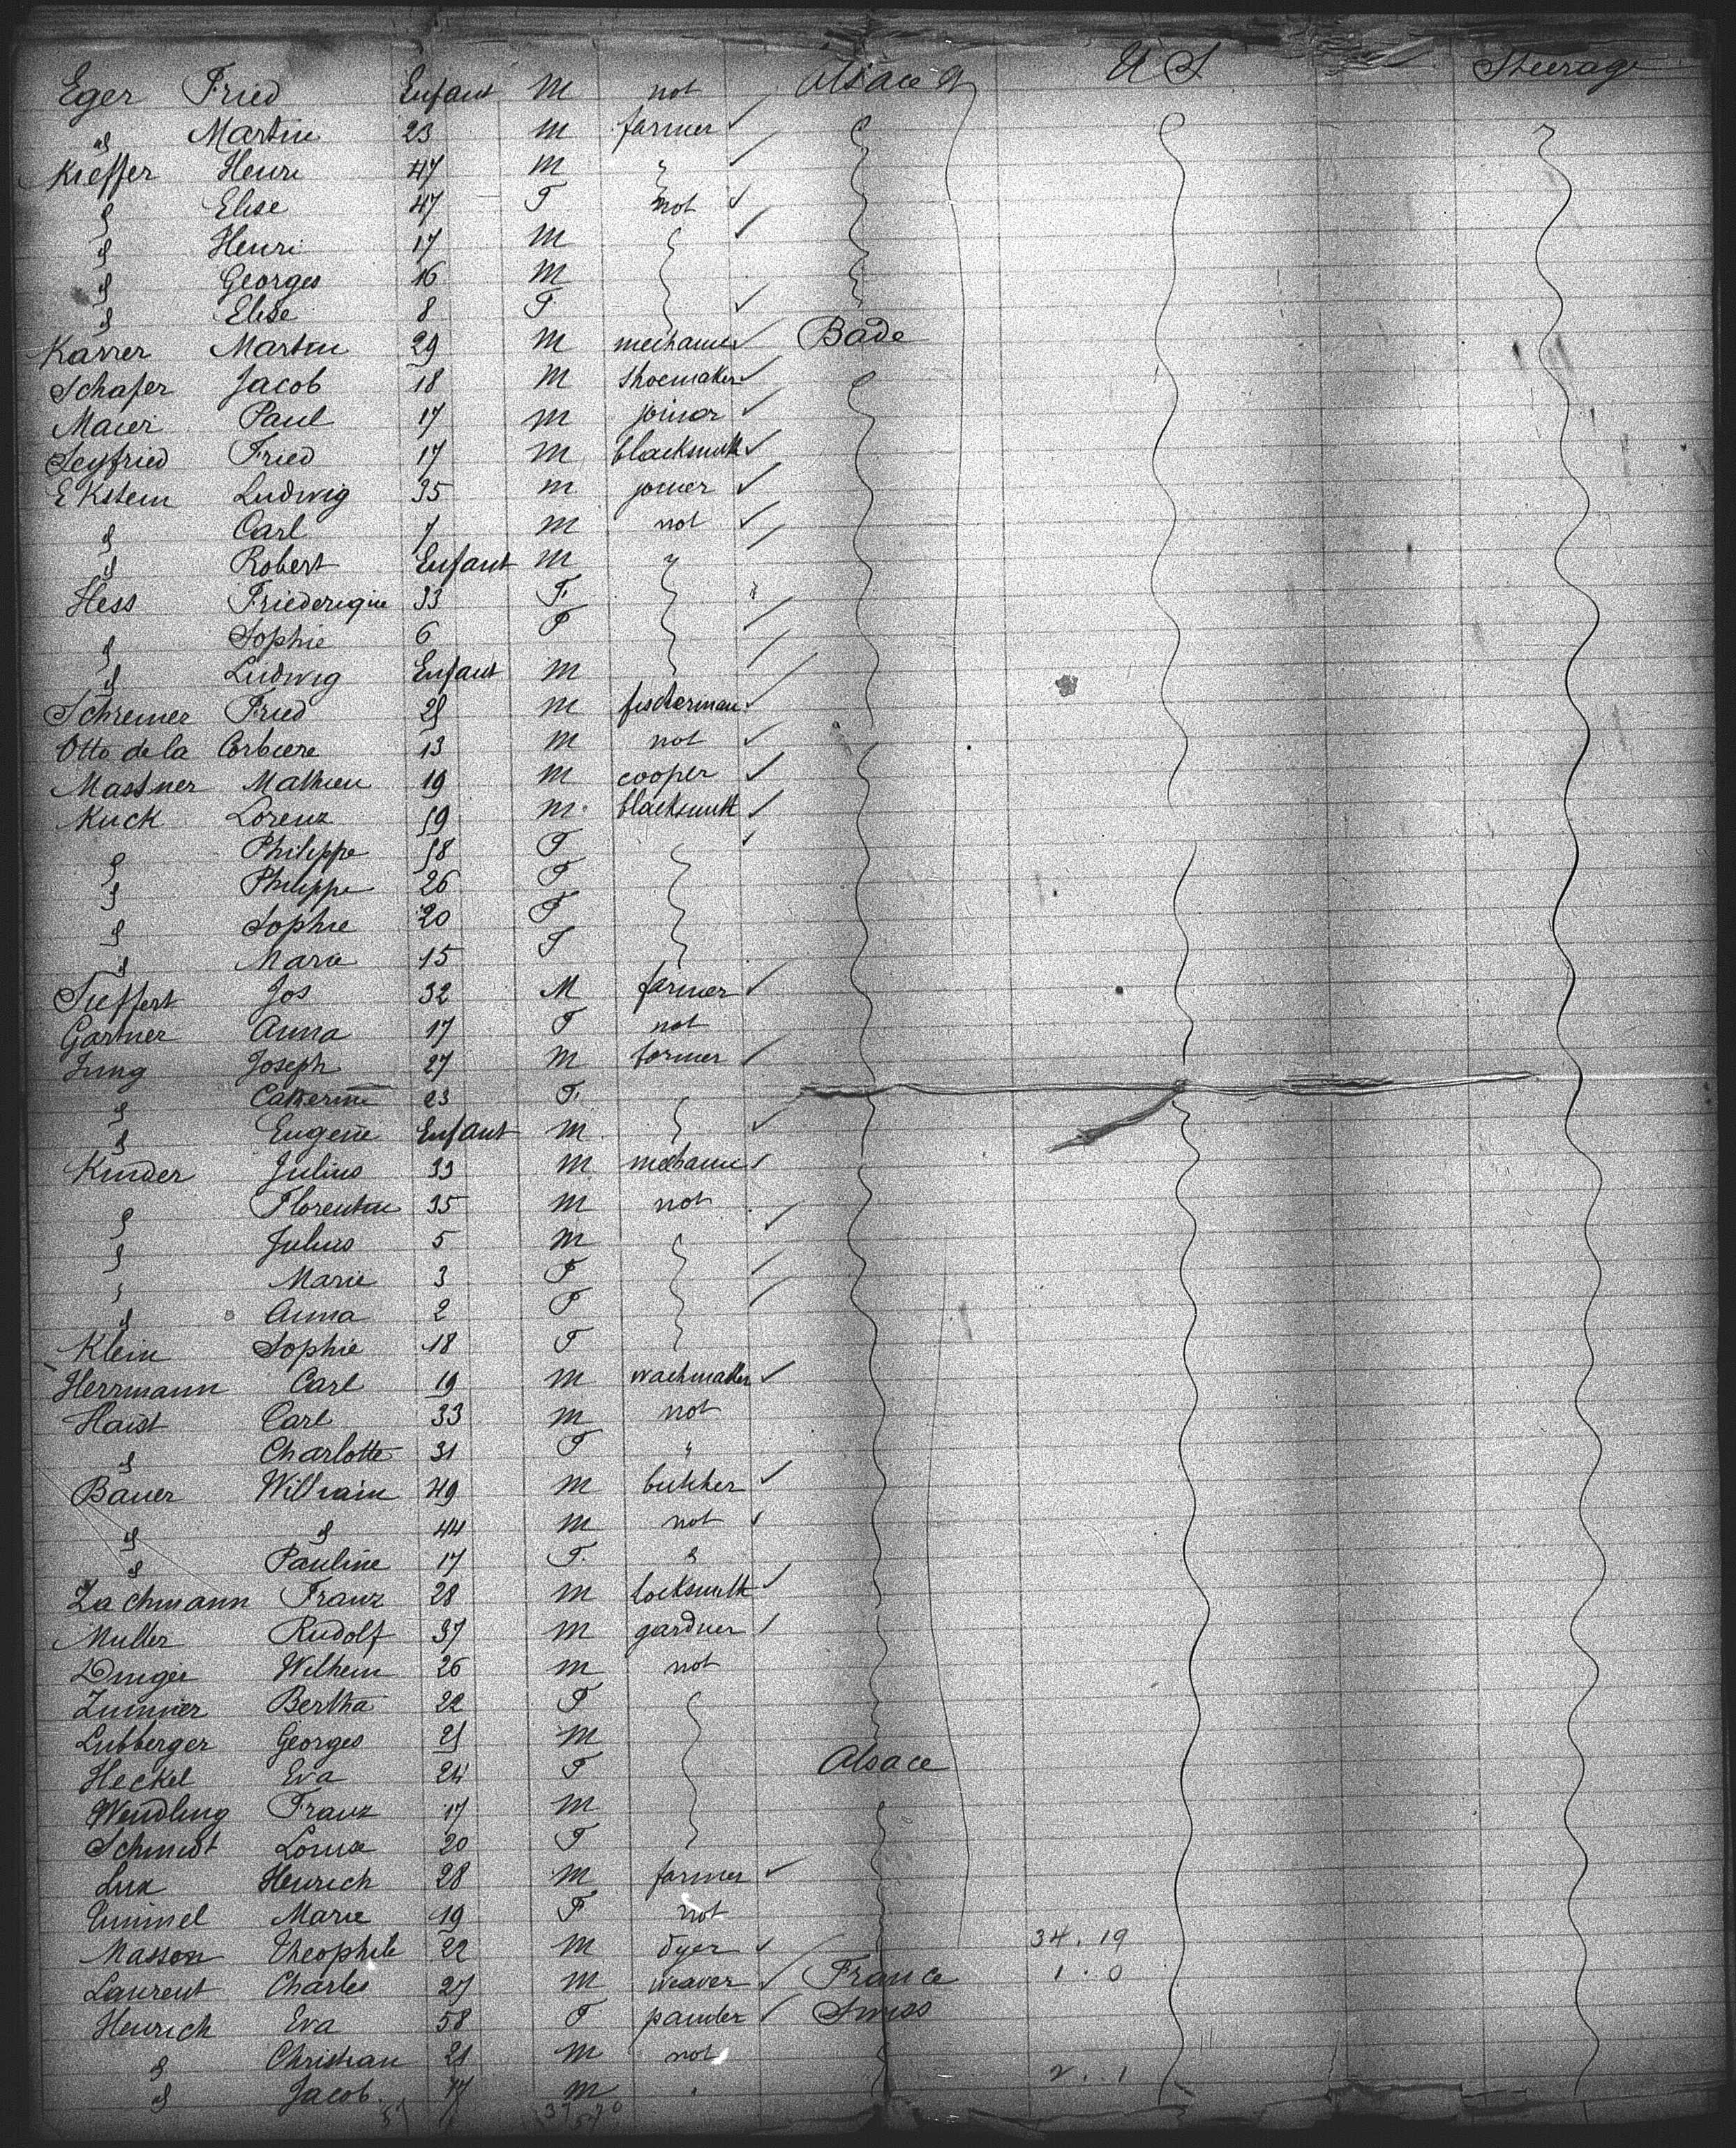 Eger Fried Enfant M not Alsace U S Steerage
" Martin 23 M farmer
Kieffer Henri 47 M "
" Elise 47 F not
" Henri 17 M
" Georges 16 M
" Elise 8 F
Karrer Martin 29 M mechanic Bade
Schafer Jacob 18 M shoemaker
Maier Paul 17 M joiner
Seyfried Fried 17 M blacksmith
Ekstein Ludwig 35 M joiner
" Carl 7 M not
" Robert Enfant M "
Hess Friederique 33 F
" Sophie 6 F
" Ludwig Enfant M
Schreiner Fried 25 M fischerman
Otto de la Corbiere 13 M not
Massner Mathieu 19 M cooper
Kuck Lorenz 59 M blacksmith
" Philippe 58 F
" Philippe 26 F
" Sophie 20 F
" Marie 15 F
Sieffert Jos 32 M farmer
Gartner Anna 17 F not
Jung Joseph 27 M farmer
" Catherine 23 F
" Eugene Enfant M
Kinder Julius 33 M mechanic
" Florentin 35 M not
" Julius 5 M
" Marie 3 F
" Anna 2 F
Klein Sophie 18 F
Herrmann Carl 19 M wachmaker
Haist Carl 33 M not
" Charlotte 31 F "
Bauer William 49 M butcher
" " 44 M not
" Pauline 17 F "
Zachmann Franz 28 M locksmith
Muller Rudolf 37 M gardner
Dinger Wilhem 26 M not
Zimmer Bertha 22 F
Lubberger Georges 25 M
Heckel Eva 24 F Alsace
Wendling Franz 17 M
Schmidt Louise 20 F
Lux Henrich 28 M farmer
Marie 19 F not
Masson Theophile 22 M dyer 34. 19
Laurent Charles 27 M weaver France 1. 0
Henrich Eva 58 F painter Swiss
" Christian 21 M not
" Jacob 17 M " 2. 1